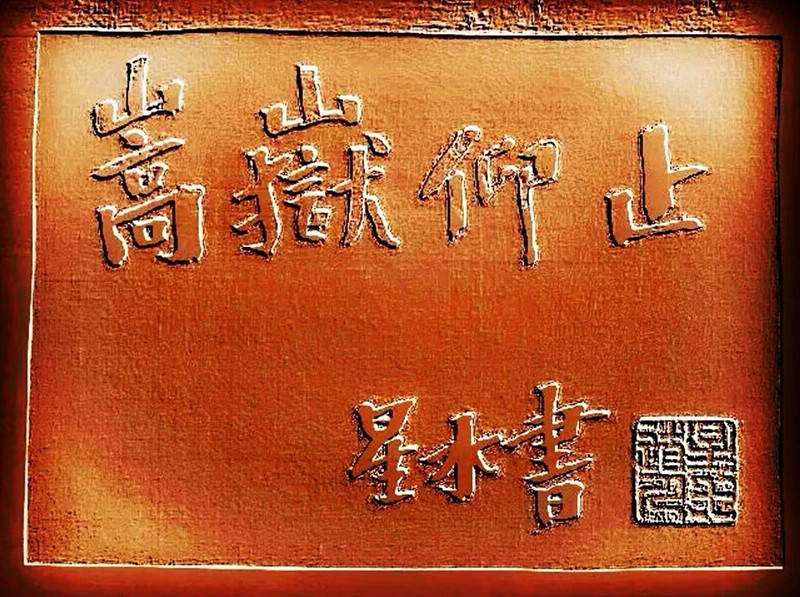 嵩嶽仰止
星水書